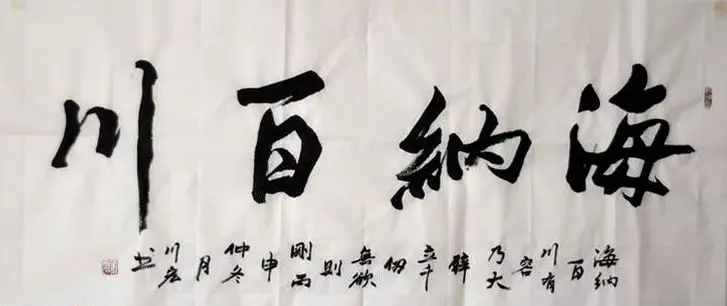 海納百川
海納百川有容乃大壁立千仞無欲則剛丙申仲冬月川宏书